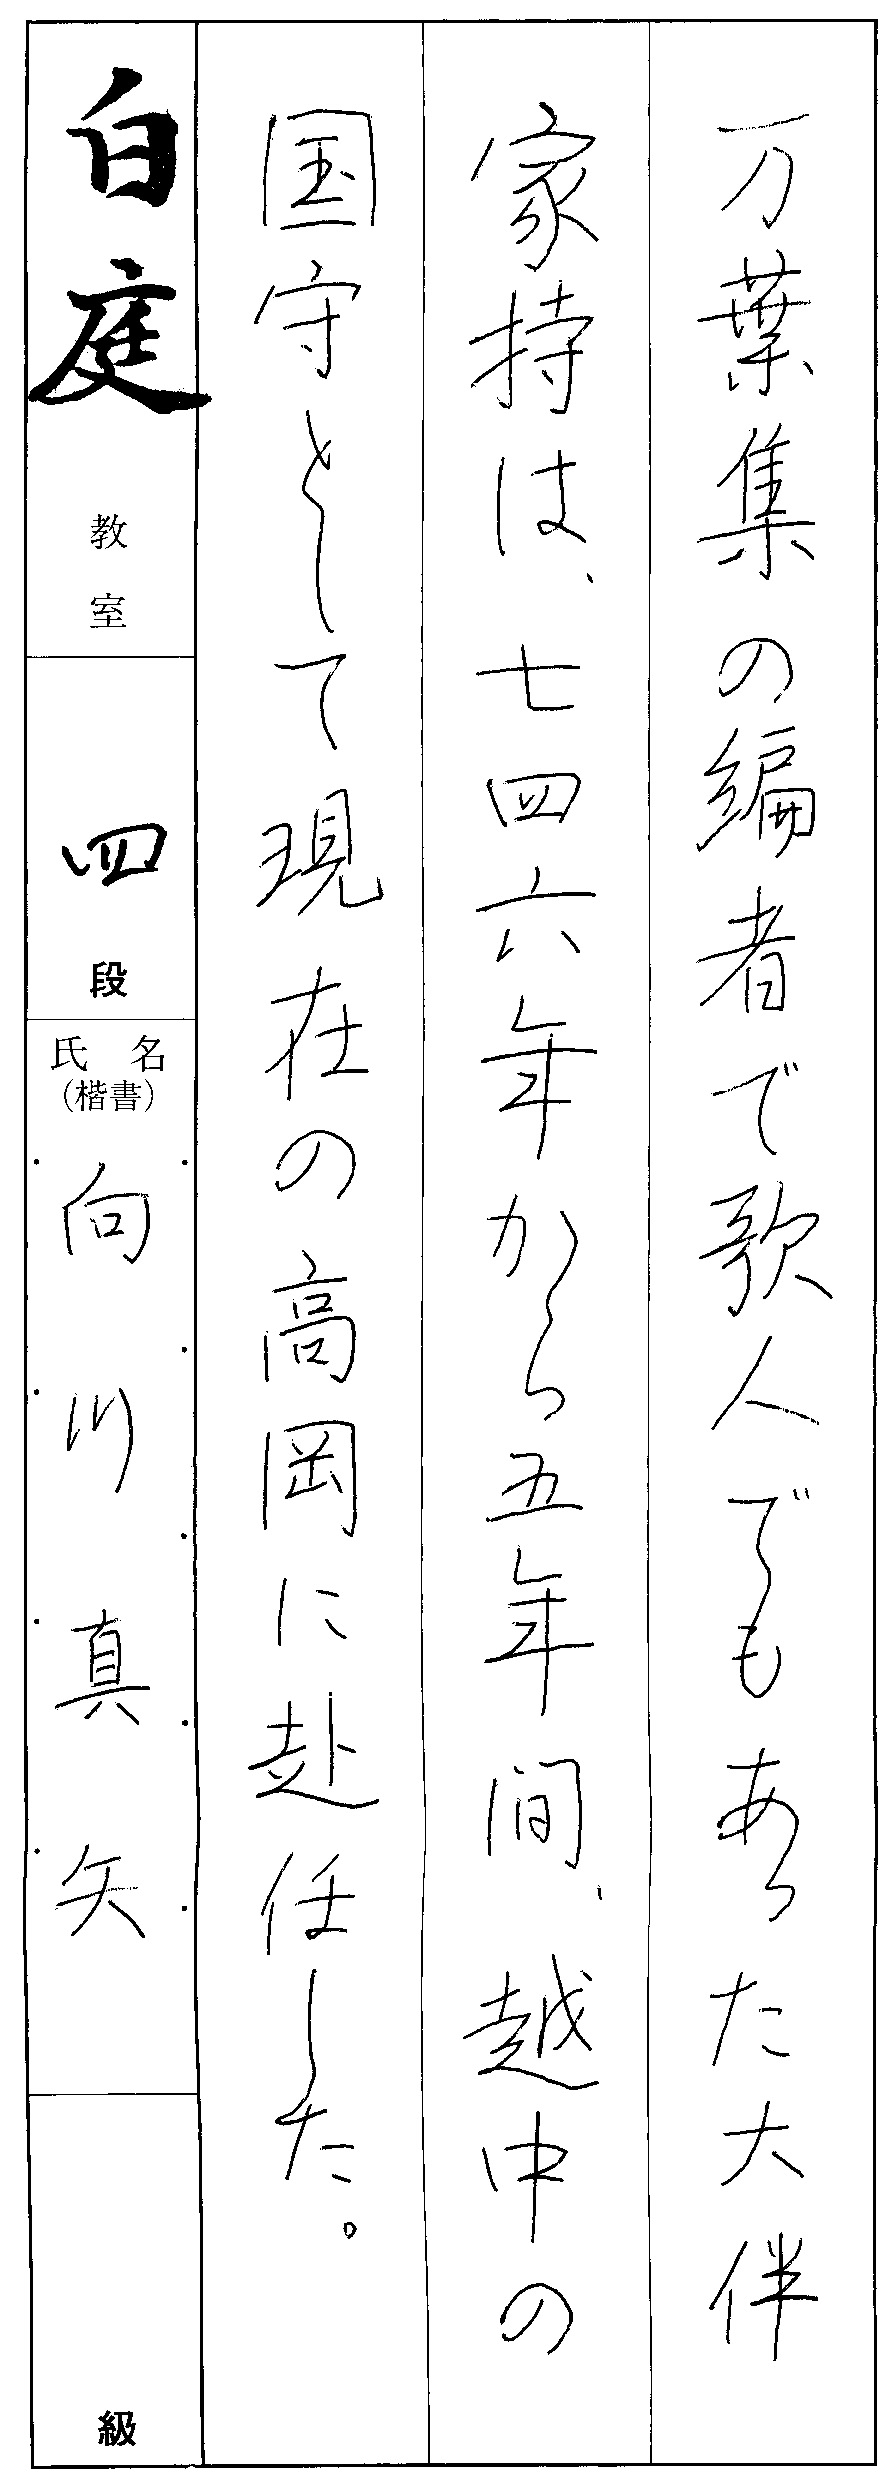 万葉集の編者で歌人でもあった大伴
家持は、七四六年から五年間、越中の
国守として現在の高岡に赴任した。
白庭教室
四段
氏名
(楷書)
向川真矢
級